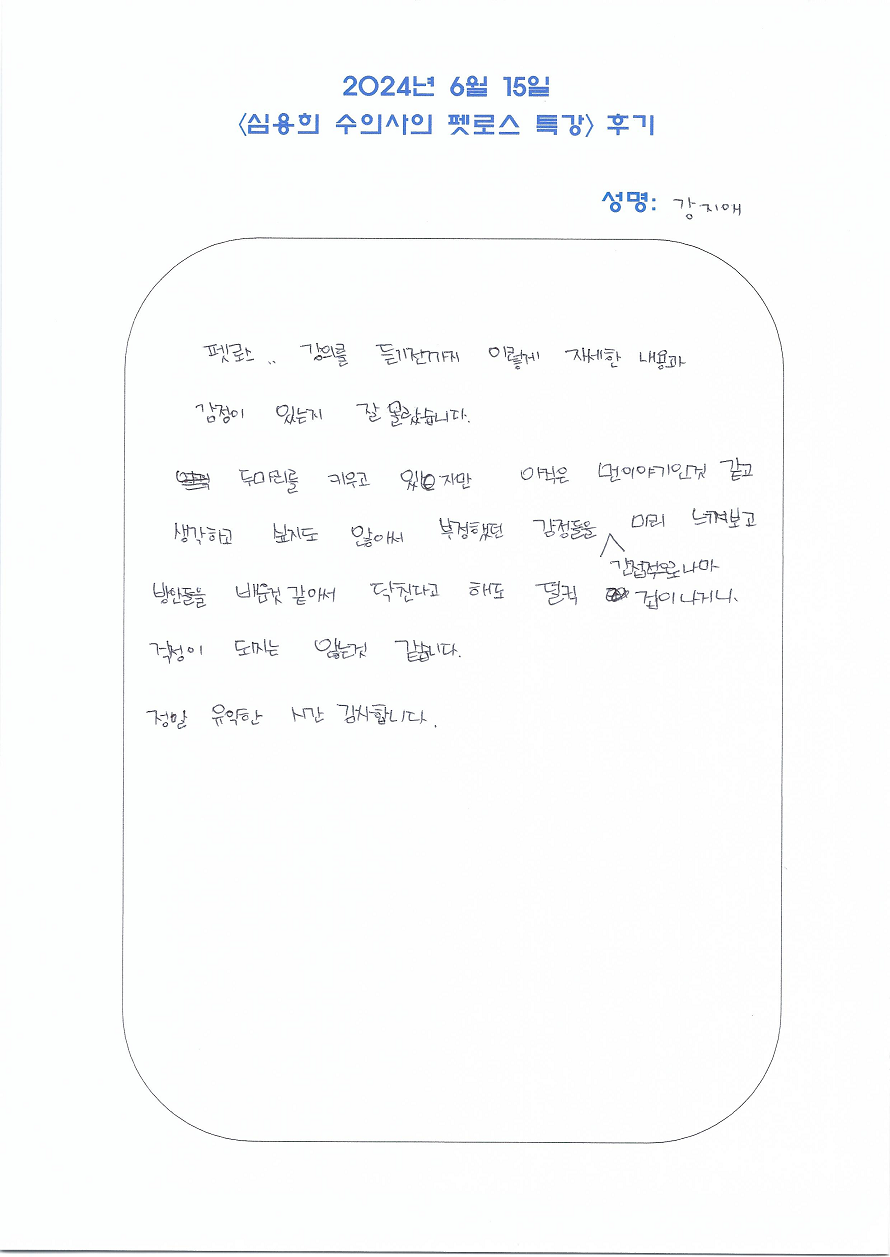 2024년 6월 15일
<심용희 수의사의 펫로스 특강> 후기
성명: 강지애
펫로스.. 강의를 듣기전까지 이렇게 자세한 내용과
감정이 있는지 잘 몰랐습니다.
두마리를 키우고 있지만 아직은 먼이야기인것 같고
생각하고 보지도 않아서 부정했던 감정들을 미리 느껴보고
간접적으로나마
방안들을 배운것 같아서 닥친다고 해도 덜컥 겁이 나거나.
걱정이 되지는 않는것 같습니다.
정말 유익한 시간 감사합니다.